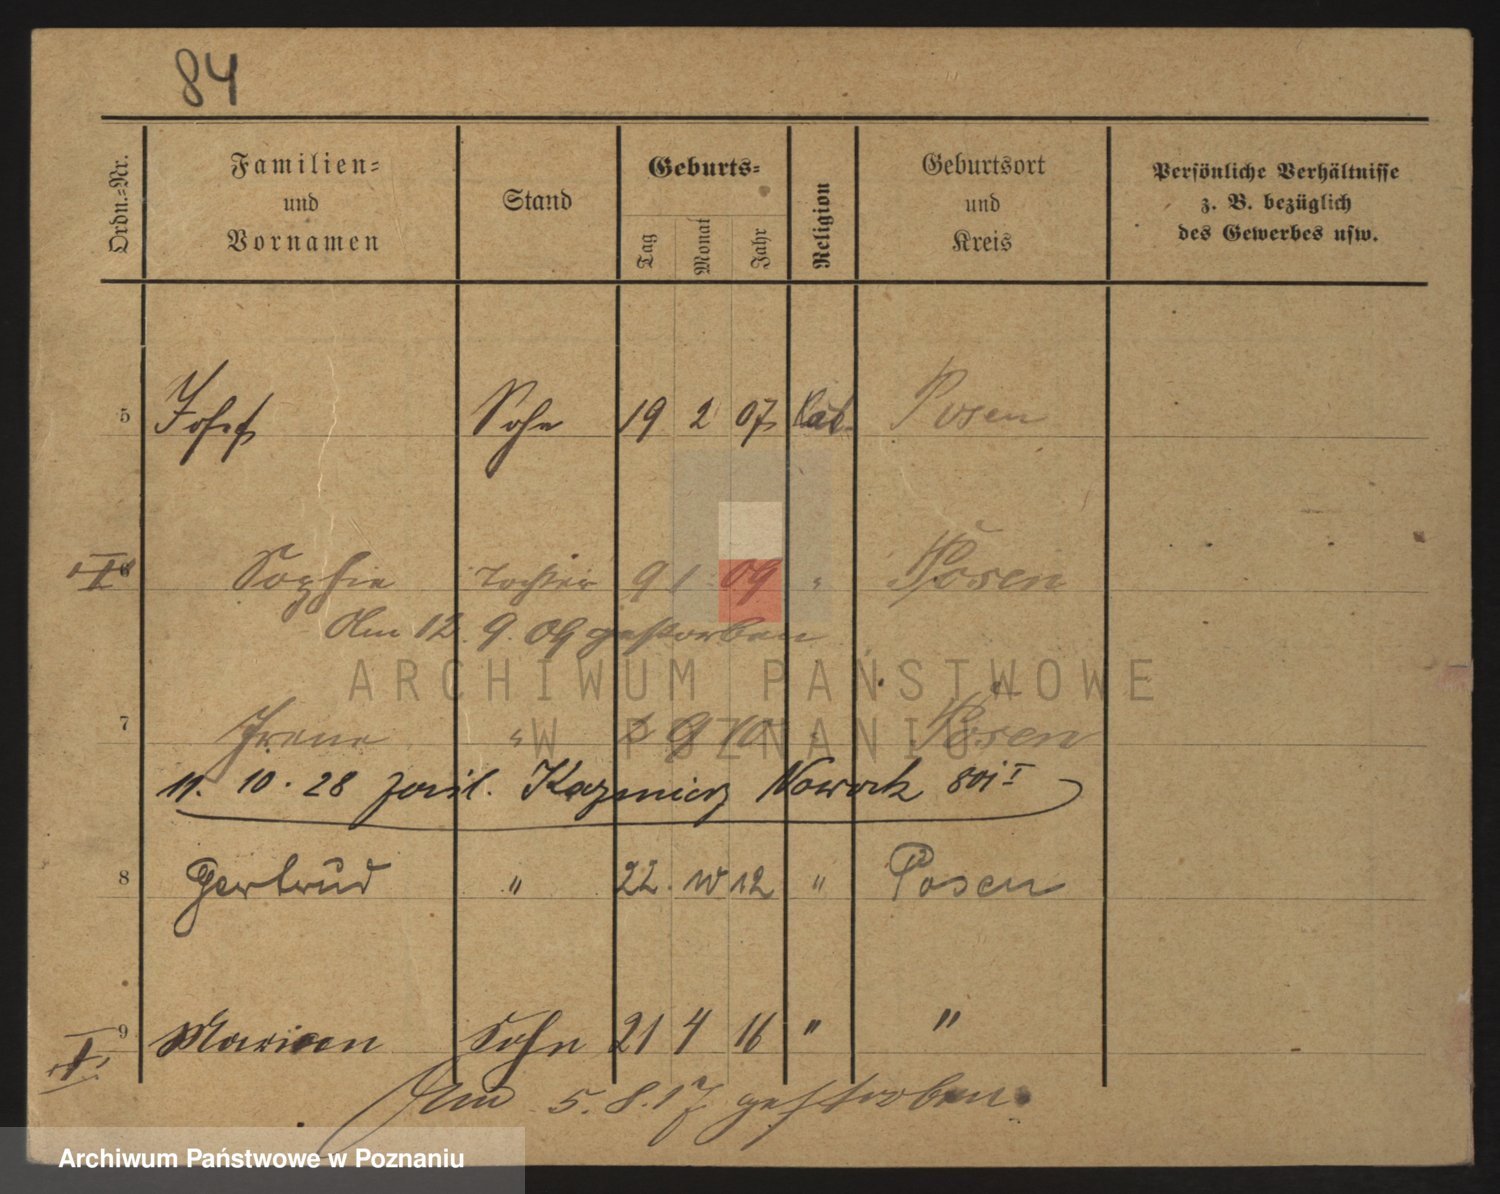 84
Ordn.=Nr.
Familien=
und
Vornamen
Stand
Geburts=
Tag
Monat
Jahr
Religion
Geburtsort
und
Kreis
Persönliche Verhältnisse
z. B. bezüglich
des Gewerbes usw.
5 Josef Sohn 19 2 07 Kat. Posen
6 Sophie Tochter 9 1 09 " Posen
Am 12. 9. 09 gestorben
7 Irene " 9 10 " Posen
11. 10. 28 zaśl. Kazmierz Nowack
8 Gertrud " 22. 10 12 " Posen
9 Marian Sohn 21 4 16 " "
Am 5. 8. 17 gestorben.
ARCHIWUM PAŃSTWOWE
W POZNANIU
Archiwum Państwowe w Poznaniu